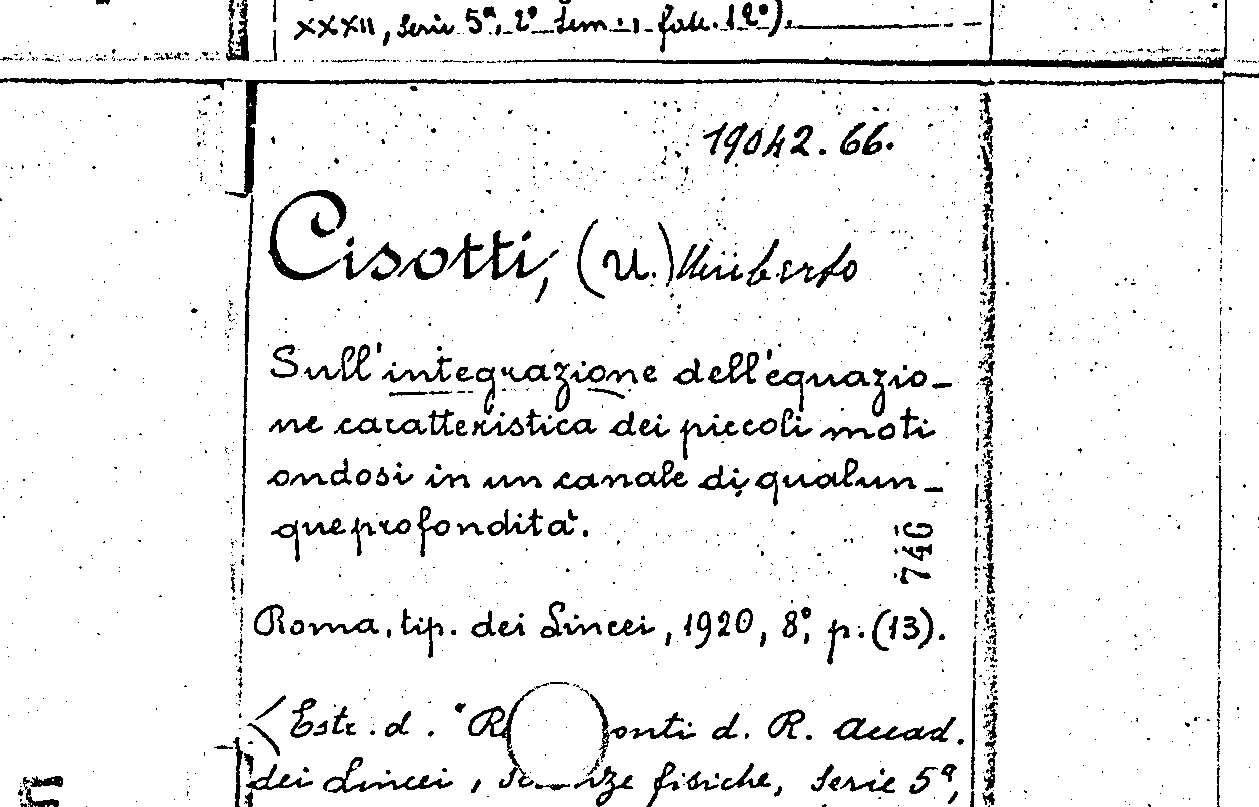 XXXII, serie 5ª, 2º Sem., fasc. 12º).
19042.66.
Cisotti, (U.) Umberto
Sull'integrazione dell'equazio-
ne caratteristica dei piccoli moti
ondosi in un canale di qualun-
que profondità.
740
Roma, tip. dei Lincei, 1920, 8º, p. (13).
Estr. d. "R onti d. R. Accad.
dei Lincei, sc nze fisiche, serie 5ª,